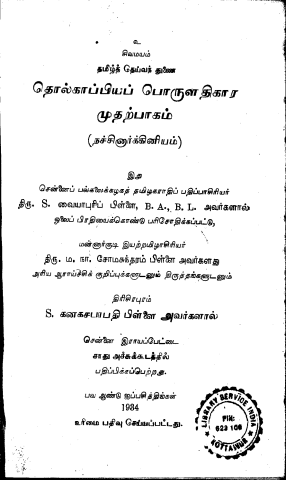 உ
சிவமயம்
தமிழ்த் தெய்வந் துணை
தொல்காப்பியப் பொருளதிகார
முதற்பாகம்
(நச்சினார்க்கினியம்)
இஃது
சென்னைப் பல்கலைக்கழகத் தமிழகராதிப் பதிப்பாசிரியர்
திரு. S. வையாபுரிப் பிள்ளை, B. A., B. L. அவர்களால்
மூலப் பிரதியைக்கொண்டு பரிசோதிக்கப்பட்டு,
மன்னார்குடி இயற்றமிழாசிரியர்
திரு. ம. நா. சோமசுந்தரம் பிள்ளை அவர்களது
அரிய ஆராய்ச்சிக் குறிப்புக்களுடனும் திருத்தங்களுடனும்
திரிசிரபுரம்
S. கனகசபாபதி பிள்ளை அவர்களால்
சென்னை இராயப்பேட்டை
சாது அச்சுக்கூடத்தில்
பதிப்பிக்கப்பெற்றது.
1934
உரிமை பதிவு செய்யப்பட்டது.
LIBRARY SERVICE INDIA
PIN:
623 106
KOTTAIYUR